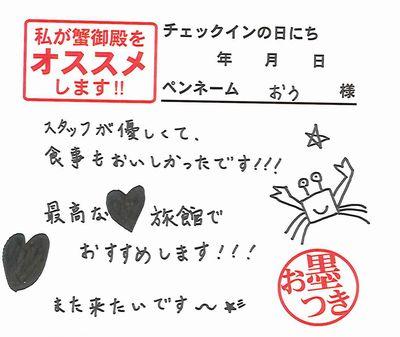 私が蟹御殿を
オススメ
します!!
チェックインの日にち
年 月 日
ペンネーム おう 様
スタッフが優しくて、
食事もおいしかったです!!!
最高な♥旅館で
おすすめします!!!
また来たいです〜
お墨つき